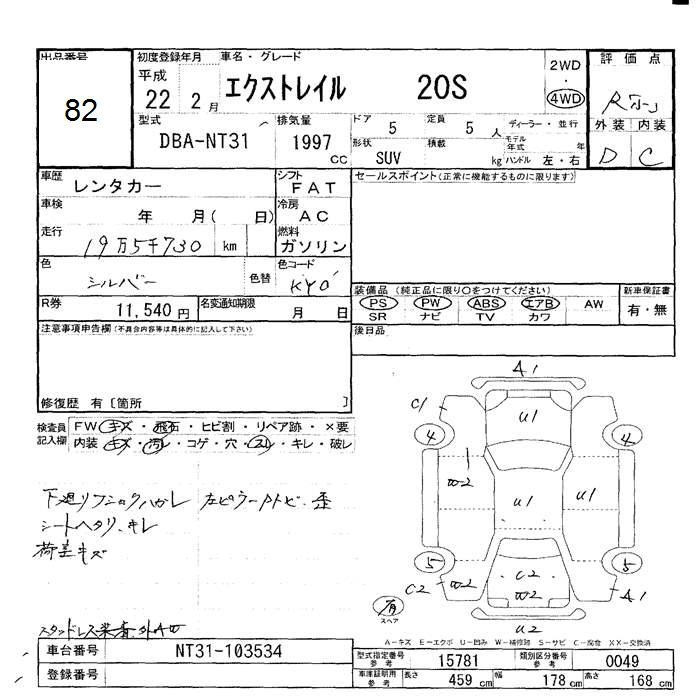 出品番号
82
初度登録年月
平成
22 2月
車名・グレード
エクストレイル 20S
2WD
・
4WD
評価点
外装 内装
D C
型式
DBA-NT31
排気量
1997
cc
ドア
5
定員
5 人
ディーラー・並行
形状
SUV
積載
kg
モデル
年式
年
ハンドル 左・右
車歴
レンタカー
シフト
FAT
車検
年 月( 日)
冷房
AC
走行
19万5千730 km
燃料
ガソリン
色
シルバー
色替
色コード
KY0
R券
11,540円
名変通知期限
月 日
セールスポイント(正常に機能するものに限ります)
装備品 (純正品に限り○をつけてください)
PS PW ABS エアB AW
SR ナビ TV カワ
新車保証書
有・無
後日品
注意事項申告欄(不具合内容等は具体的に記入して下さい)
修復歴 有〔箇所 〕
検査員
記入欄
FW キズ・飛石・ヒビ割・リペア跡・×要
内装 キズ・汚レ・コゲ・穴・スレ・キレ・破レ
シートヘタリ、キレ
荷差キズ
A1
C1
U1
4
4
W2
U1
U1
5
5
C2
W2
C2
W2
A1
有
スペア
U2
A-キズ E-エクボ U-凹み W-補修跡 S-サビ C-腐食 XX-交換済
車台番号
NT31-103534
登録番号
型式指定番号
参考
15781
類別区分番号
参考
0049
車庫証明用
参考
長さ
459 cm
幅
178 cm
高さ
168 cm